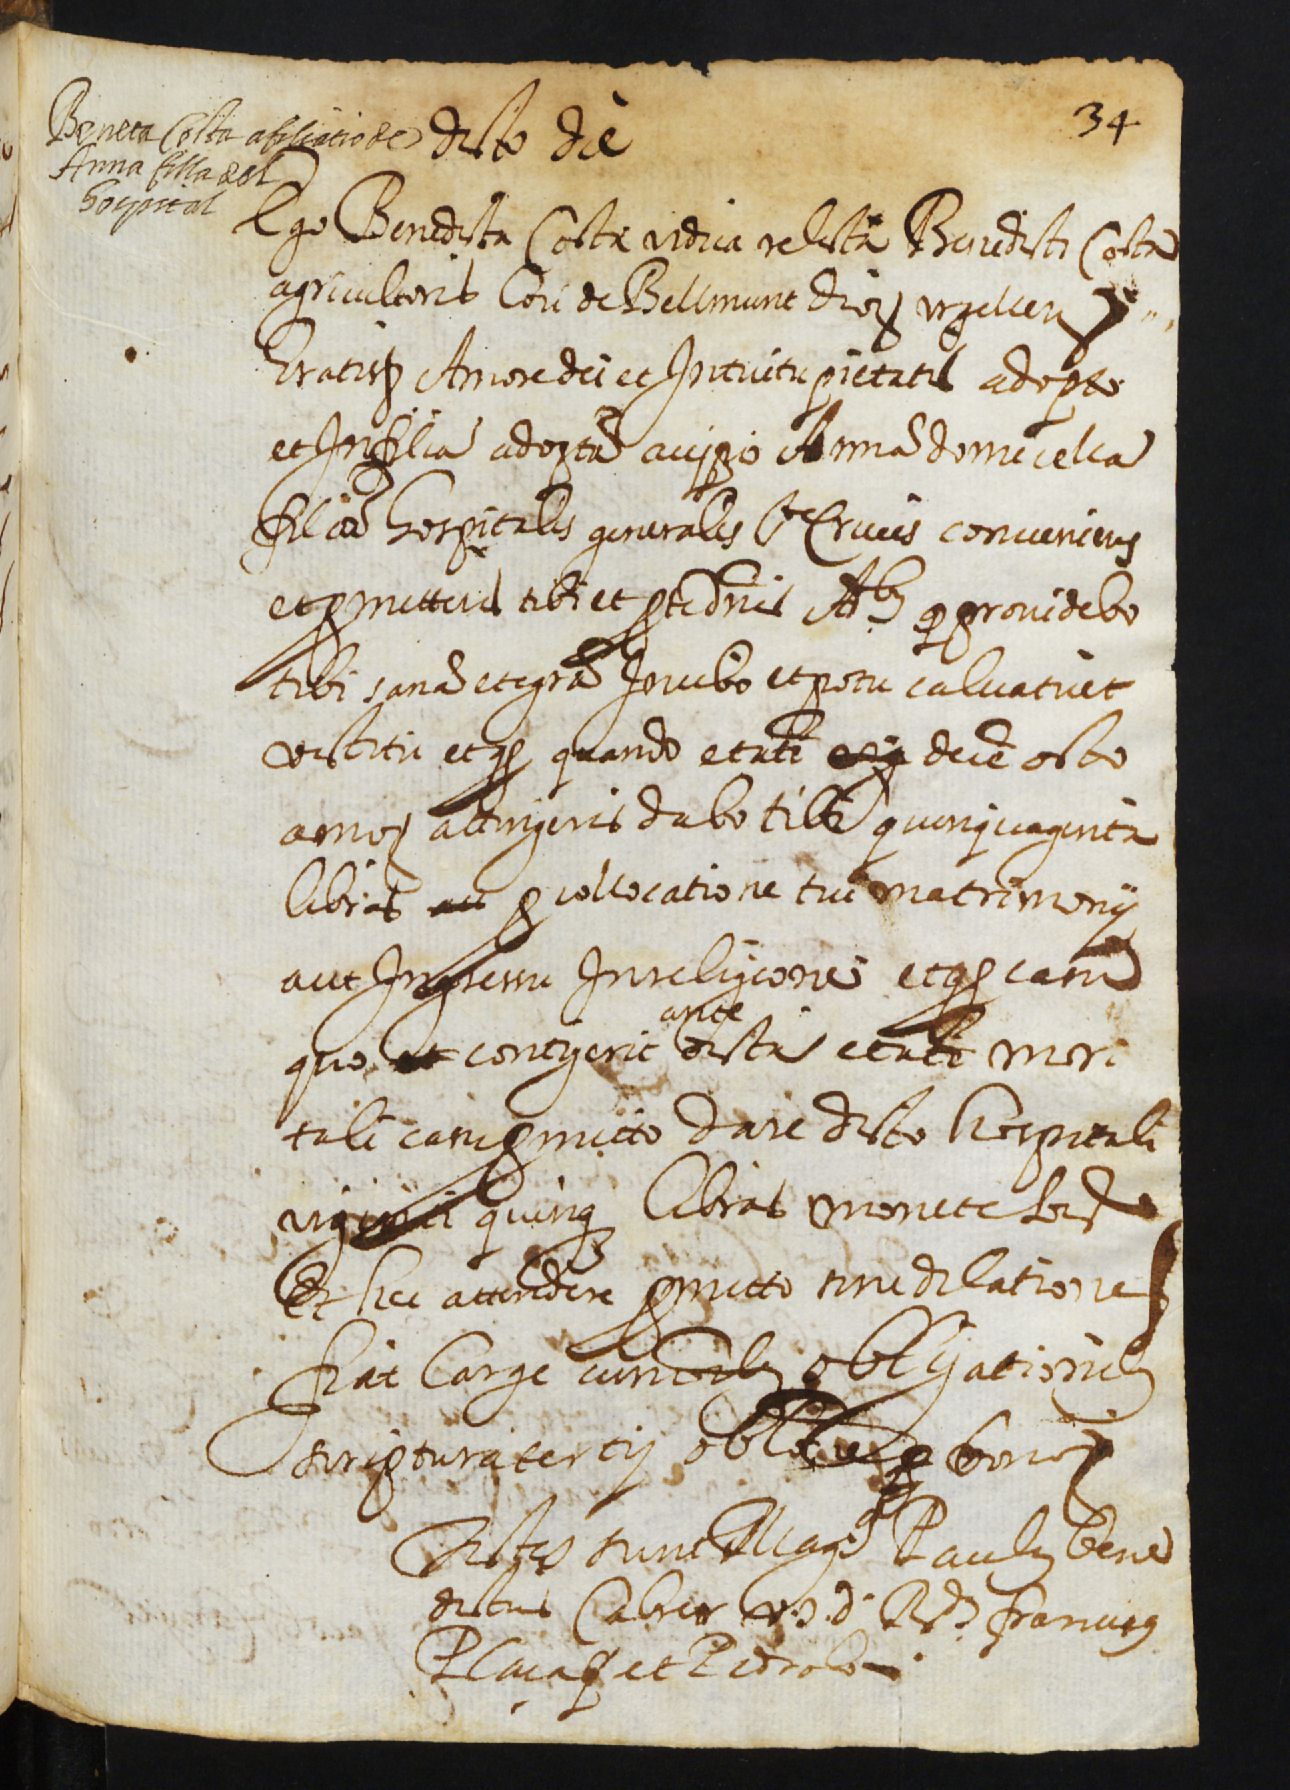 34
Beneta Costa afiliatio de
Anna filla del
hospital
dicto die
Ego Benedicta Costa vidua relicta Benedicti Costa
agricultoris loci de Bellmunt dioc urgellen
Gratis Amore dei et Intuitu pietatis adopto
et In filia adopta accipio Anna domicella
filia hospitalis generalis Ste Crucis conveniens
et pmittens tibi et dnis Ab q providebo
tibi sana et egra In cibo et potu calciatu et
vestitu et q quando etate dece octo
annoz attingeris dabo tibi quinquaginta
libras p collocatione tui matrimonij
aut Ingressu In religione et q casu
quo contigerit ante dicta etate mori
tali casu pmitto dare dicto hospitali
viginti quinq libras monete
Et hec attendere pmitto sine dilatione
fiat large cum obligationib
scriptura tertij bonoz
Testes sunt Mag Paulus Bene
dictus Cabrer v. J. d. Rds franciscus
Plaça et Pedrolo